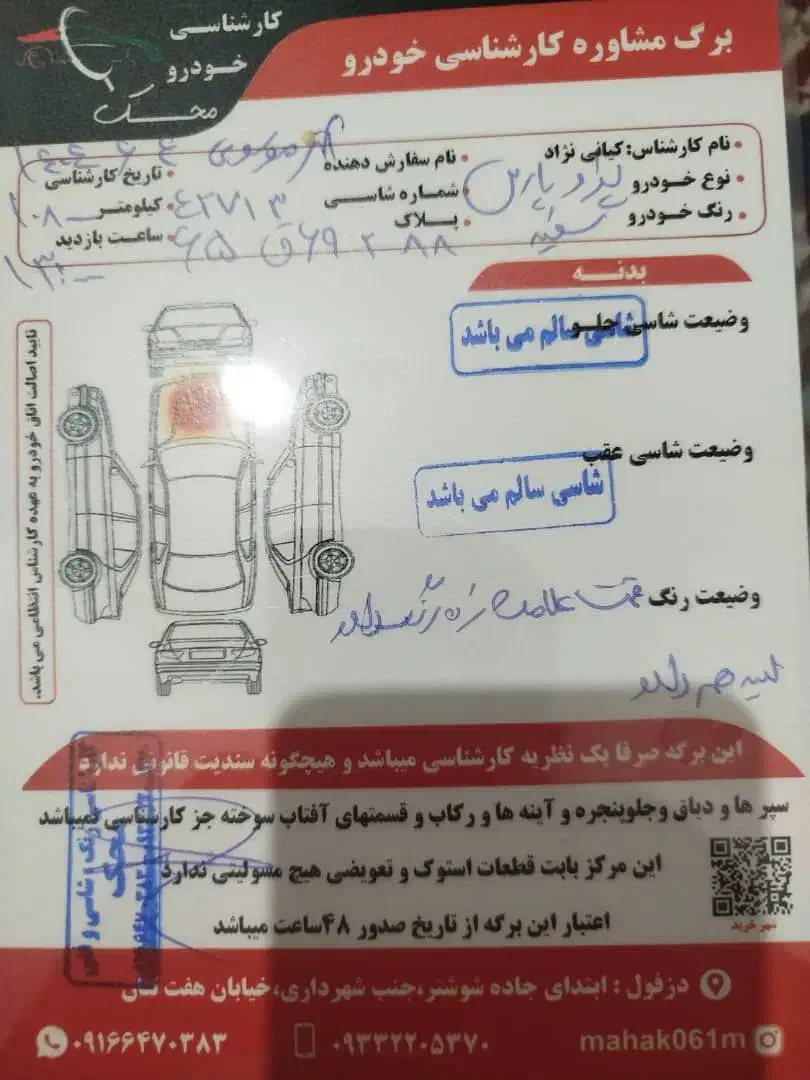 برگ مشاوره کارشناسی خودرو
کارشناسی
خودرو
محک
نام کارشناس: کیانی نژاد
نام سفارش دهنده
تاریخ کارشناسی
نوع خودرو پژو پارس
شماره شاسی ۴۲۷۱۳
کیلومتر ۱۰۸
رنگ خودرو سفید
پلاک
ساعت بازدید
بدنه
وضیعت شاسی جلو
شاسی سالم می باشد
وضیعت شاسی عقب
شاسی سالم می باشد
وضیعت رنگ قسمت علامت زده رنگ دارد
تایید اصالت اتاق خودرو به عهده کارشناس انتظامی می باشد.
این برگه صرفا یک نظریه کارشناسی میباشد و هیچگونه سندیت قانونی ندارد
سپر ها و دیاق وجلوپنجره و آینه ها و رکاب و قسمتهای آفتاب سوخته جز کارشناسی نمیباشد
این مرکز بابت قطعات استوک و تعویضی هیچ مسولیتی ندارد
اعتبار این برگه از تاریخ صدور ۴۸ساعت میباشد
مهر خرید
کارشناسی رنگ، شاسی و فنی
محک
دزفول : ابتدای جاده شوشتر،جنب شهرداری،خیابان هفت تنان
mahak061m
۰۹۳۳۲۲۰۵۳۷۰
۰۹۱۶۶۴۷۰۳۸۳